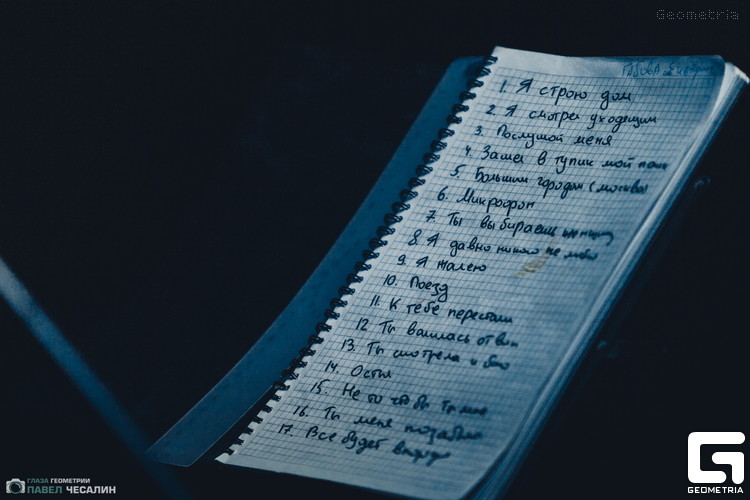 Geometria
1. Я строю дом
2. Я смотрел уходящим
3. Послушай меня
4. Зашел в тупик мой
5. Большим городом (москва)
6. Микрофон
7. Ты выбираешь женщину
8. Я давно никого не любил
9. Я жалею
10. Поезд
11. К тебе перестал
12. Ты
13. Ты смотрела и
14. Остыл
15. Не то чтобы ты мне
16. Ты меня позабыла
17. Все будет впереди
ГЛАЗА ГЕОМЕТРИИ
ПАВЕЛ ЧЕСАЛИН
GEOMETRIA